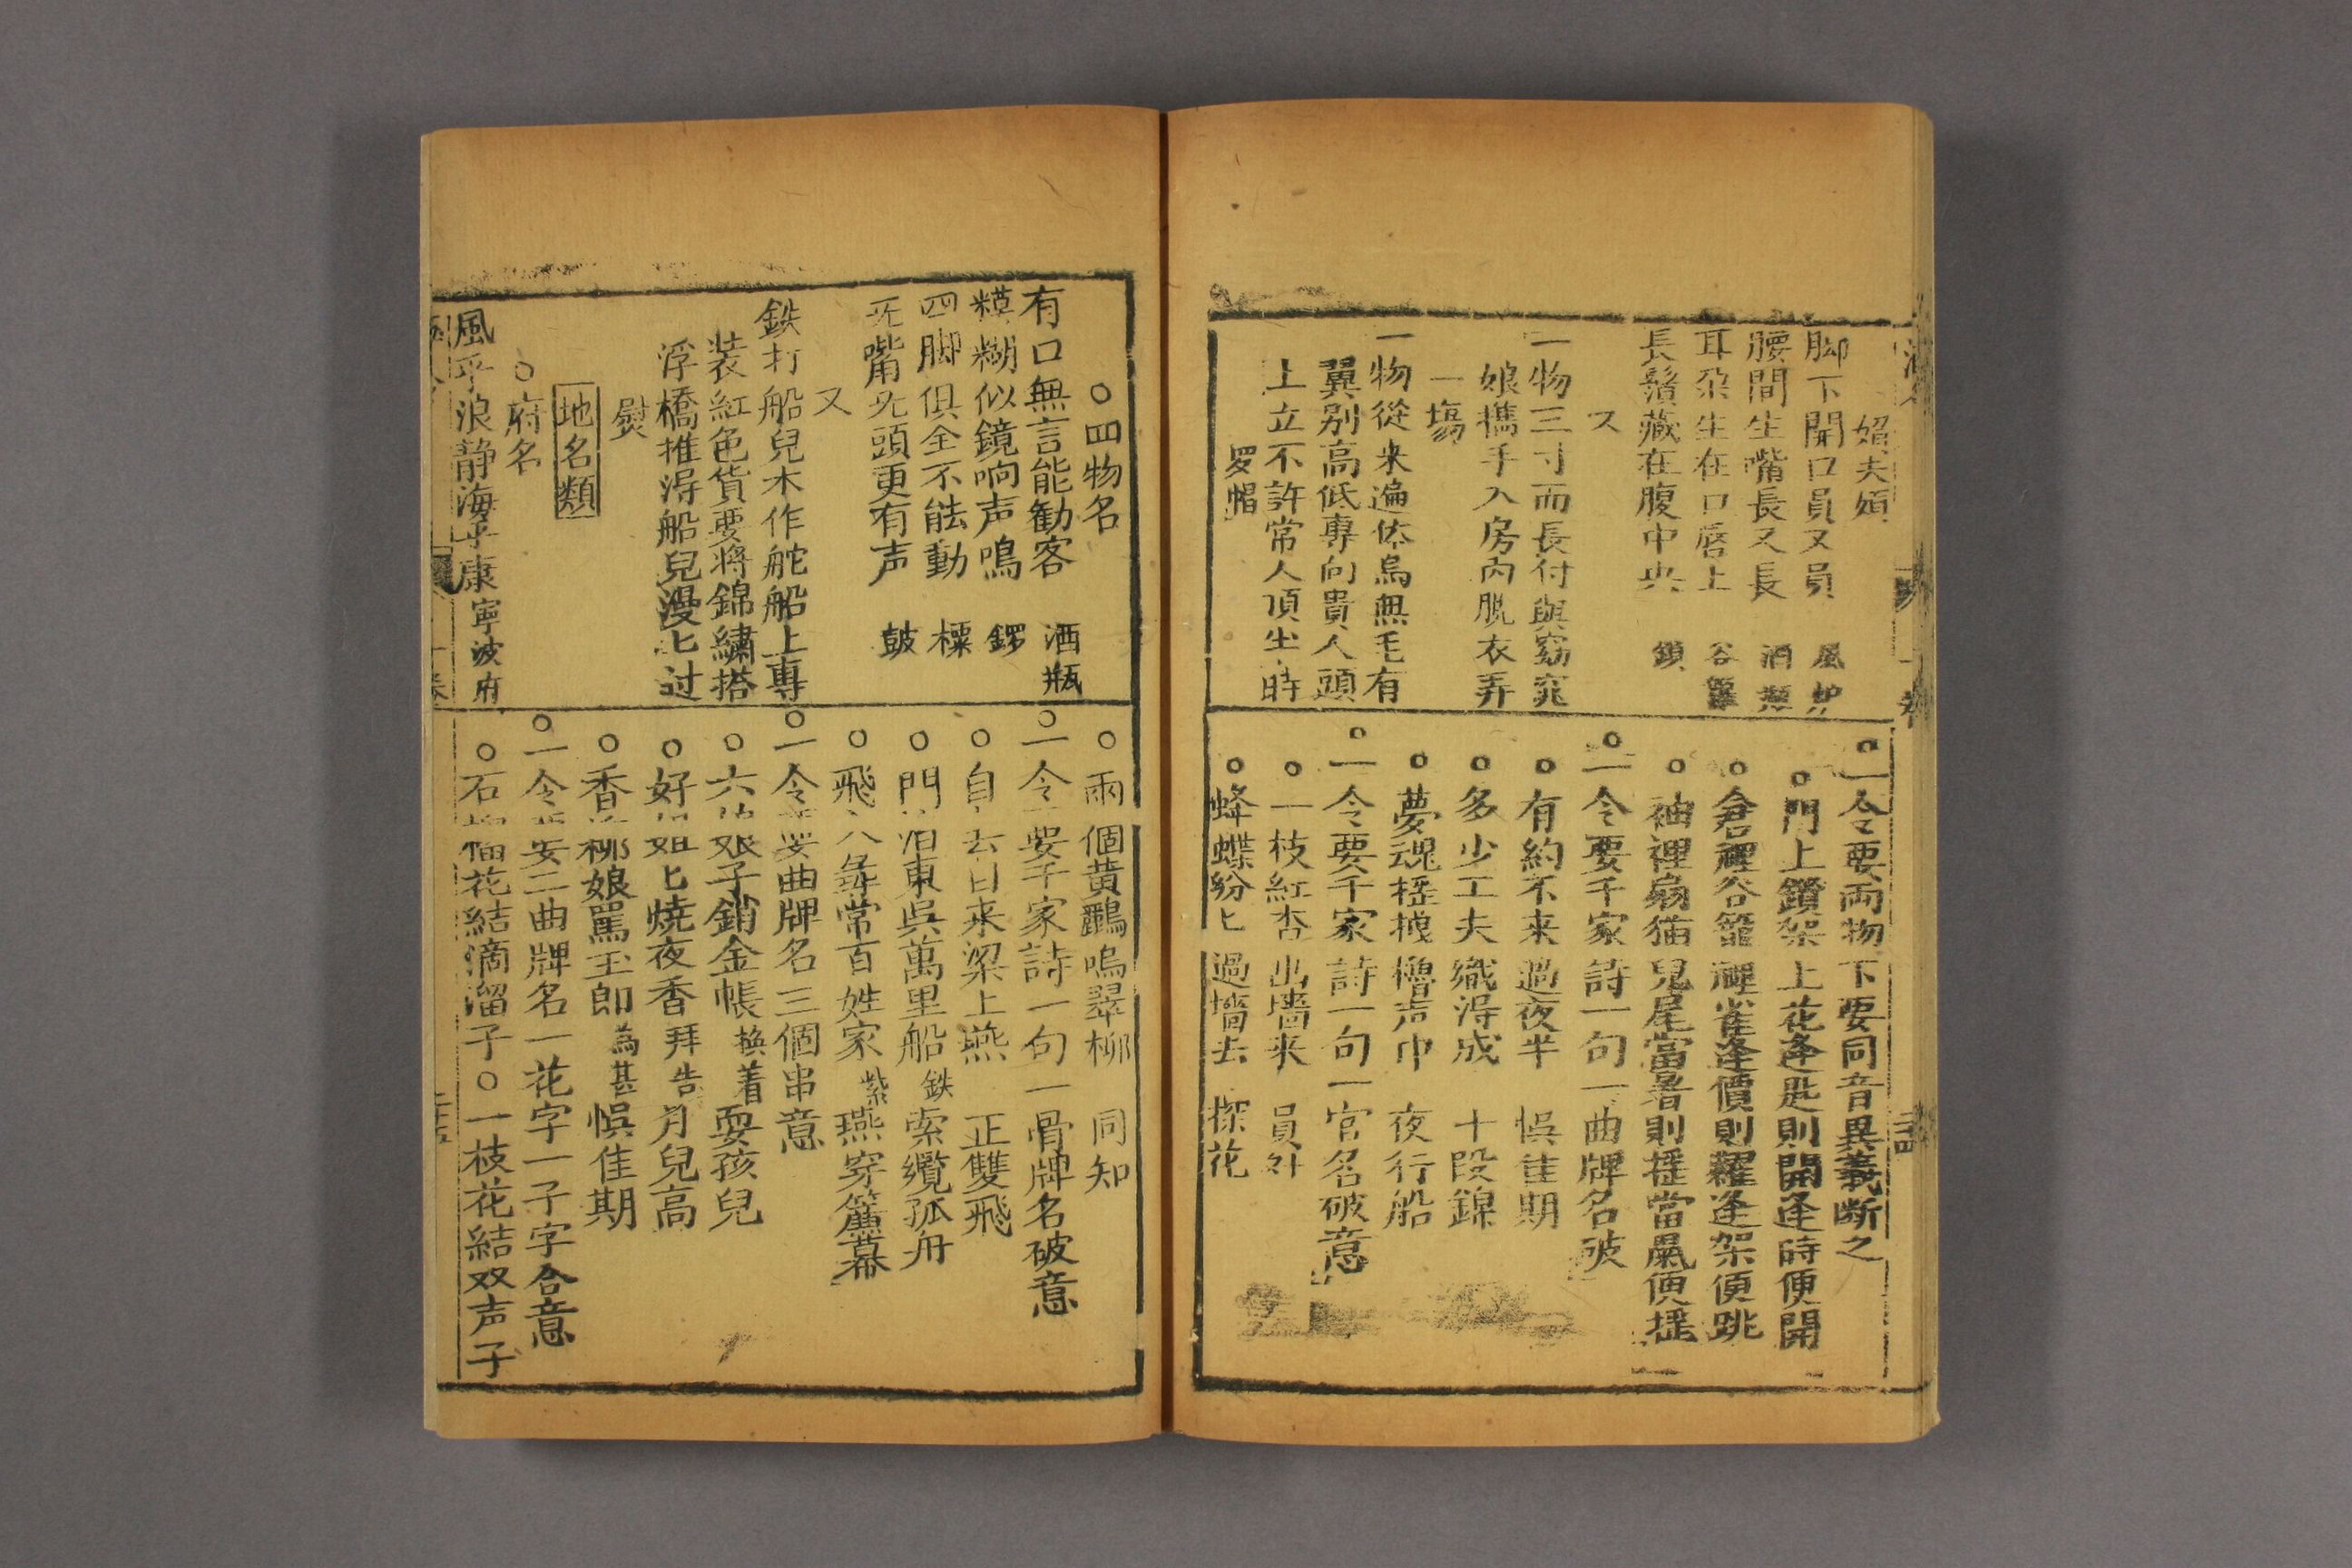 脚下開口員又員 風炉
腰間生嘴長又長 酒
耳朶生在口唇上 谷
長鬚藏在腹中央 鎖
又
一物三寸而長付與窈窕
娘攜手入房内脱衣弄
一塲
一物從来遍体烏無毛有
翼别高低專向貴人頭
上立不許常人頂坐時
罗帽
一令要両物下要同音異義断之
○門上鎖架上花逢匙則開逢時便開
○倉裡谷籠裡雀逢價則糶逢架便跳
○袖裡扇猫兒尾當暑則揺當鼠便揺
○一令要千家詩一句一曲牌名破
○有約不来過夜半 悮佳期
○多少工夫織淂成 十段錦
○夢魂揺拽櫓声中 夜行船
○一令要千家詩一句一官名破意
○一枝紅杏出墻来 員外
○蜂蝶紛匕過墻去 探花
○四物名
有口無言能勧客 酒瓶
糢糊似鏡响声鳴 鑼
四脚俱全不能動 槕
无嘴无頭更有声 鼓
又
鉄打船兒木作舵船上專
装紅色貨要將錦繡搭
浮橋推淂船兒漫匕过
熨
地名類
○府名
風乎浪静海乎康 寧波府
○兩個黄鸝鳴翠柳 同知
○一令要千家詩一句一骨牌名破意
○自去自来梁上燕 正雙飛
○門泊東吳萬里船 鉄索纜孤舟
○飛入尋常百姓家 紫燕穿簾幕
○一令要曲牌名三個串意
○六娘子銷金帳 換着耍孩兒
○好姐匕燒夜香 拜告月兒高
○香柳娘罵玉郎 為甚悮佳期
○一令要二曲牌名一花字一子字合意
○石榴花結滴溜子○一枝花結双声子